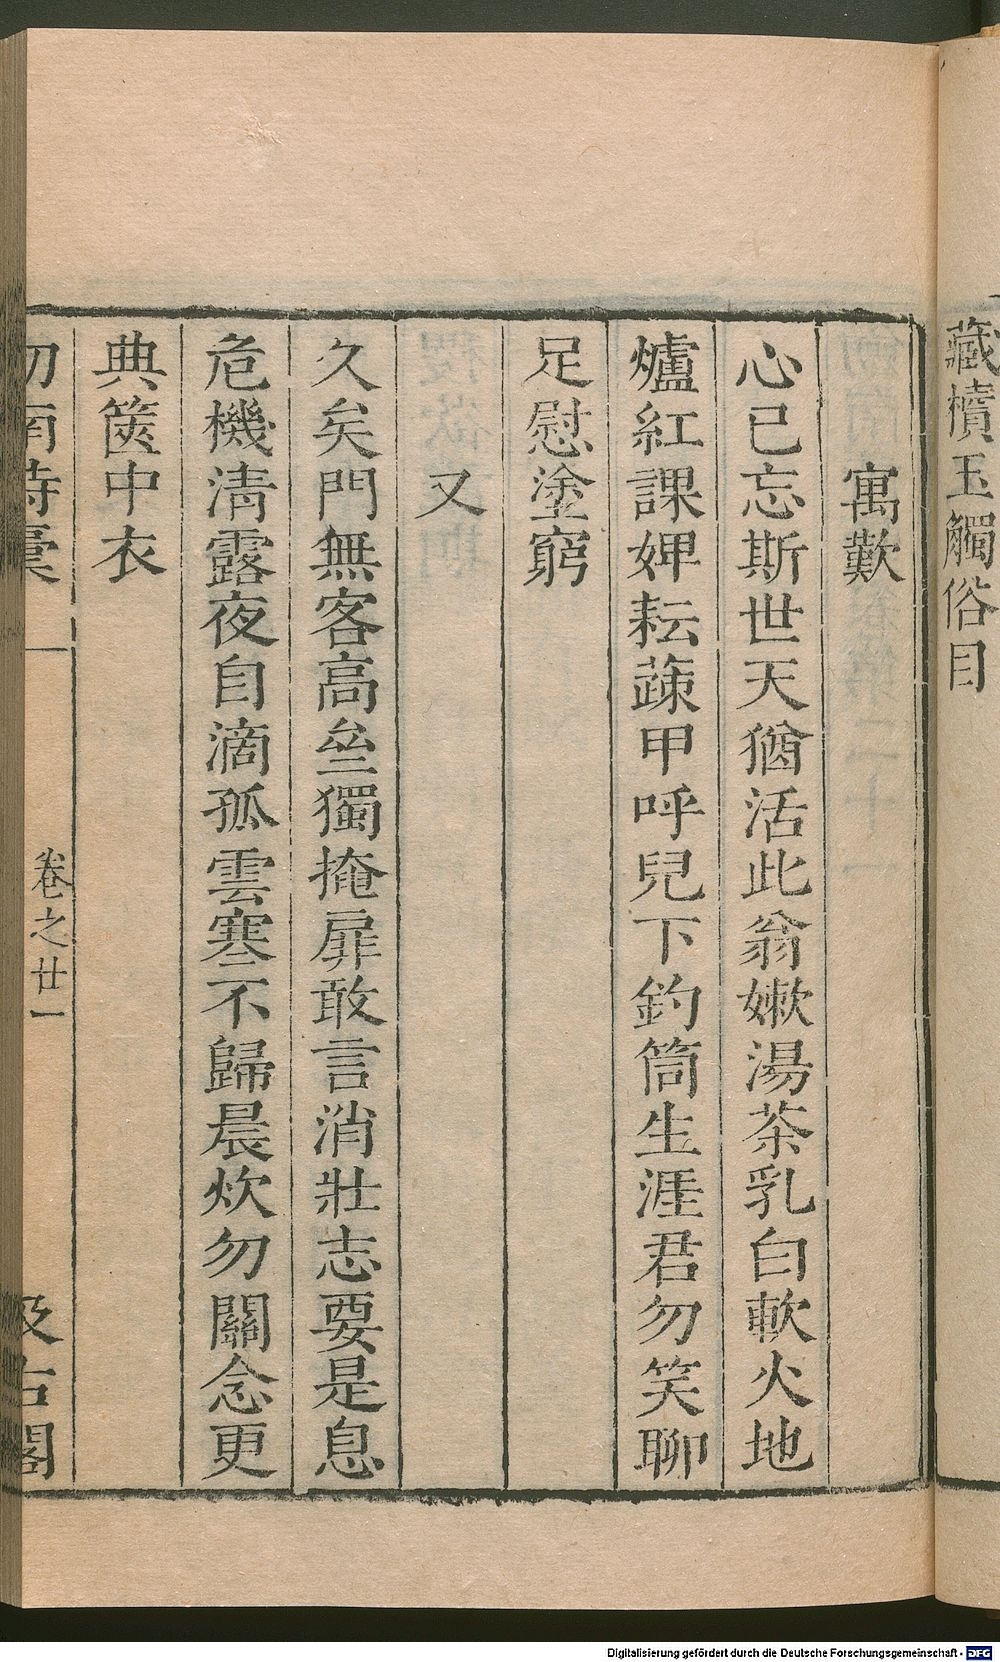 藏櫝玉觸俗目
寓歎
心已忘斯世天猶活此翁嫰湯茶乳白軟火地
爐紅課婢耘蔬甲呼兒下釣筒生涯君勿笑聊
足慰塗窮
又
久矣門無客高垒獨掩扉敢言消壯志要是息
危機清露夜自滴孤雲寒不歸晨炊勿關念更
典篋中衣
劎南詩稾 卷之廿一 汲古閣
Digitalisierung gefördert durch die Deutsche Forschungsgemeinschaft - DFG